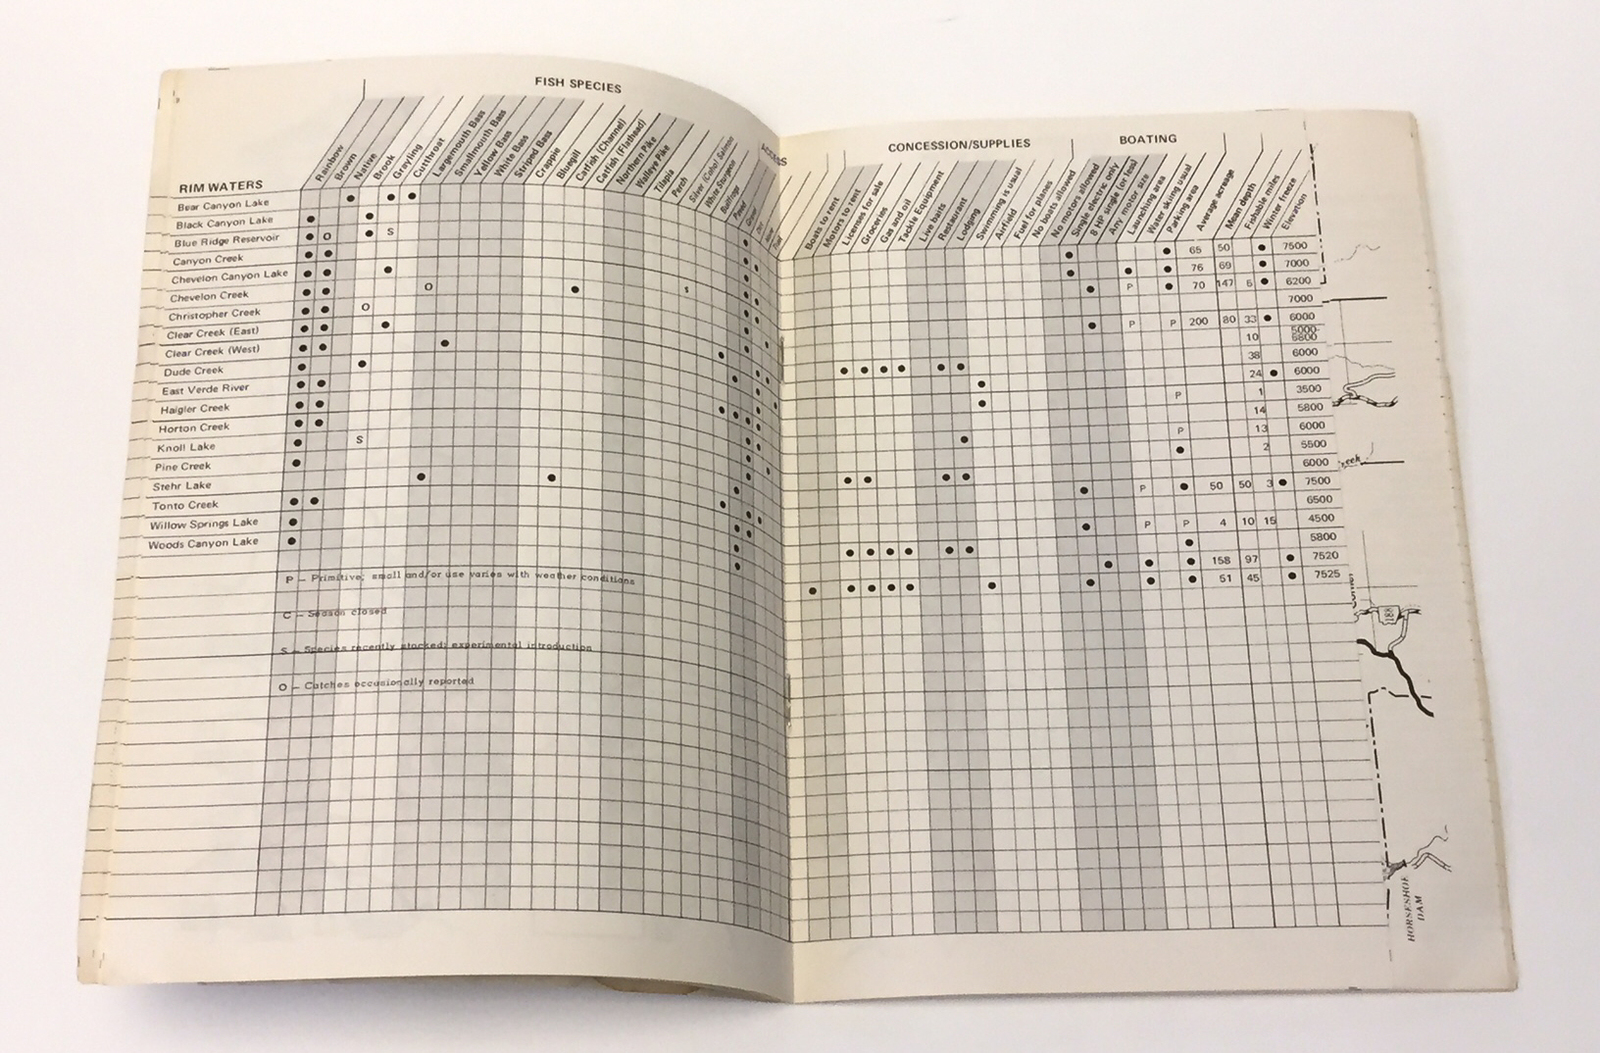 FISH SPECIES
RIM WATERS
Rainbow
Brown
Native
Brook
Grayling
Cutthroat
Largemouth Bass
Smallmouth Bass
Yellow Bass
White Bass
Striped Bass
Crappie
Bluegill
Catfish (Channel)
Catfish (Flathead)
Northern Pike
Walleye Pike
Tilapia
Perch
Silver (Coho) Salmon
White Sturgeon
Bullfrogs
Paved
Bear Canyon Lake
Black Canyon Lake
Blue Ridge Reservoir O S
Canyon Creek
Chevelon Canyon Lake O S
Chevelon Creek O
Christopher Creek
Clear Creek (East)
Clear Creek (West)
Dude Creek
East Verde River
Haigler Creek
Horton Creek S
Knoll Lake
Pine Creek
Stehr Lake
Tonto Creek
Willow Springs Lake
Woods Canyon Lake
P – Primitive; small and/or use varies with weather conditions
C – Season closed
S – Species recently stocked; experimental introduction
O – Catches occasionally reported
CONCESSION/SUPPLIES
BOATING
Boats to rent
Motors to rent
Licenses for sale
Groceries
Gas and oil
Tackle Equipment
Live baits
Restaurant
Lodging
Swimming is usual
Airfield
Fuel for planes
No boats allowed
No motors allowed
Single electric only
8 HP single (or less)
Any motor size
Launching area
Water skiing usual
Parking area
Average acreage
Mean depth
Fishable miles
Winter freeze
Elevation
65 50 7500
76 69 7000
P 70 147 6200
7000
P P 200 80 33 6000
10 5000-6800
38 6000
24 6000
P 1 3500
14 5800
P 13 6000
2 5500
6000
P 50 50 3 7500
6500
P P 4 10 15 4500
5800
158 97 7520
51 45 7525
188
HORSESHOE
DAM